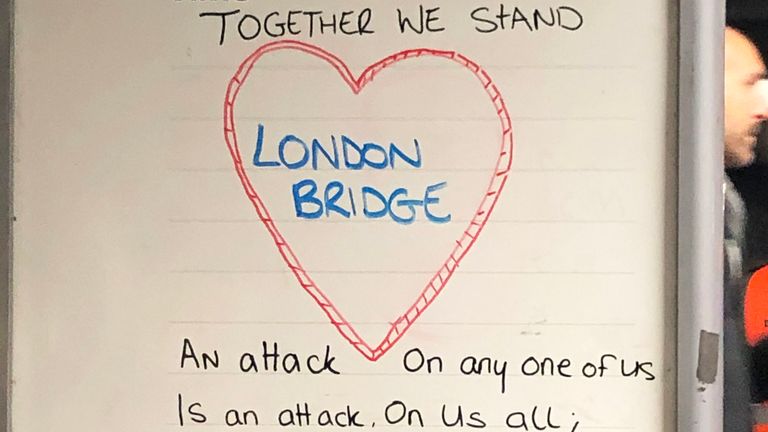 TOGETHER WE STAND
LONDON
BRIDGE
AN attack On any one of us
Is an attack. On Us all;